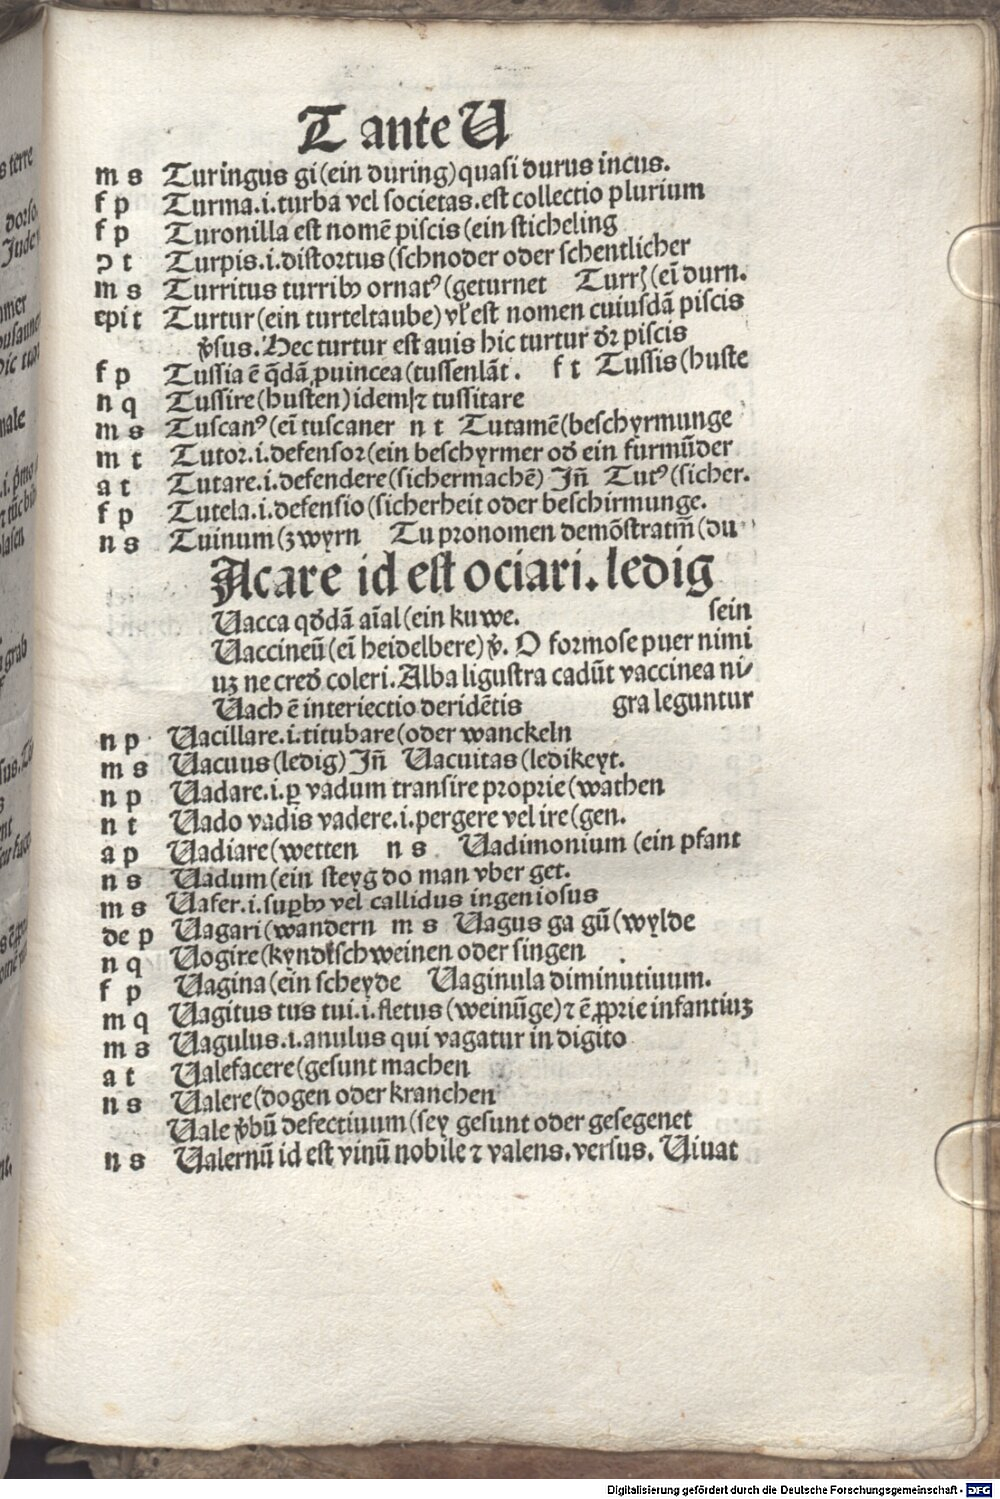 T ante U
m s Turingus gi (ein during) quasi durus incus.
f p Turma .i. turba vel societas. est collectio plurium
f p Turonilla est nomē piscis (ein sticheling
ↄ t Turpis .i. distortus (schnoder oder schentlicher
m s Turritus turribꝰ ornatꝰ (geturnet Turrꝭ (eī durn.
epi t Turtur (ein turteltaube) vł est nomen cuiusdā piscis
v̄sus. Hec turtur est auis hic turtur dr piscis
f p Tussia ē q̄dā ꝓuincea (tussenlāt. f t Tussis (huste
n q Tussire (husten) idem ꝛ tussitare
m s Tuscanꝰ (eī tuscaner n t Tutamē (beschyrmunge
m t Tutor .i. defensor (ein beschyrmer od̄ ein furmūder
a t Tutare .i. defendere (sichermachē) Jn̄ Tutꝰ (sicher.
f p Tutela .i. defensio (sicherheit oder beschirmunge.
n s Tuinum (zwyrn Tu pronomen demōstratiū (du
Acare id est ociari. ledig
Uacca qd̄dā aīal (ein kuwe. sein
Uaccineū (eī heidelbere) v̄. O formose puer nimi
uꝫ ne cred̄ coleri. Alba ligustra cadūt vaccinea ni-
Uach ē interiectio deridētis gra leguntur
n p Uacillare .i. titubare (oder wanckeln
m s Uacuus (ledig) Jn̄ Uacuitas (ledikeyt.
n p Uadare .i. ꝑ vadum transire proprie (wathen
n t Uado vadis vadere .i. pergere vel ire (gen.
a p Uadiare (wetten n s Uadimonium (ein pfant
n s Uadum (ein steyg do man vber get.
m s Uafer .i. suꝑbꝰ vel callidus ingeniosus
de p Uagari (wandern m s Uagus ga gū (wylde
n q Uogire (kyndt schweinen oder singen
f p Uagina (ein scheyde Uaginula diminutiuum.
m q Uagitus tus tui .i. fletus (weinūge) ⁊ ē ꝓprie infantiuꝫ
m s Uagulus .i. anulus qui vagatur in digito
a t Ualefacere (gesunt machen
n s Ualere (dogen oder kranchen
Uale v̄bū defectiuum (sey gesunt oder gesegenet
n s Ualernū id est vinū nobile ⁊ valens. versus. Uiuat
Digitalisierung gefördert durch die Deutsche Forschungsgemeinschaft - DFG